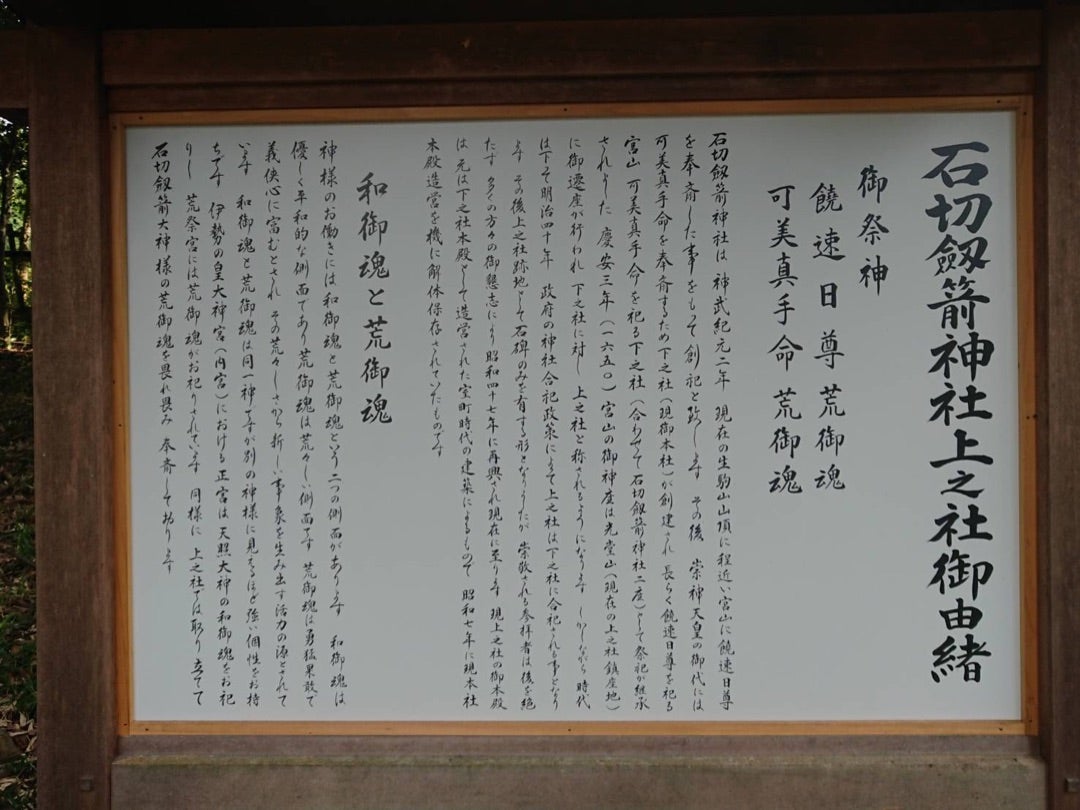 石切劔箭神社上之社御由緒
御祭神
饒速日尊 荒御魂
可美真手命 荒御魂
石切劔箭神社は 神武紀元二年 現在の生駒山山頂に程近い宮山に饒速日尊
を奉斎した事をもって創祀と致します その後 崇神天皇の御代には
可美真手命を奉斎するため下之社(現御本社)が創建され 長らく饒速日尊を祀る
宮山 可美真手命を祀る下之社(合わせて石切劔箭神社二座)として祭祀が継承
されました 慶安三年(一六五〇) 宮山の御神座は光堂山(現在の上之社鎮座地)
に御遷座が行われ 下之社に対し 上之社と称されるようになります しかしながら 時代
は下って明治四十年 政府の神社合祀政策によって上之社は下之社に合祀される事となり
ます その後上之社跡地として石碑のみを有する形となりましたが 崇敬される参拝者は後を絶
たず 多くの方々の御懇志により 昭和四十七年に再興され現在に至ります 現上之社の御本殿
は 元は下之社本殿として造営された室町時代の建築によるもので 昭和七年に現本社
本殿造営を機に解体保存されていたものです
和御魂と荒御魂
神様のお働きには 和御魂と荒御魂という二つの側面があります 和御魂は
優しく平和的な側面であり 荒御魂は荒々しい側面です 荒御魂は勇猛果敢で
義侠心に富むとされ その荒々しさから新しい事象を生み出す活力の源とされて
います 和御魂と荒御魂は同一神ですが別の神様に見えるほど強い個性をお持
ちです 伊勢の皇大神宮(内宮)における正宮は 天照大神の和御魂をお祀
りし 荒祭宮には荒御魂がお祀りされています 同様に 上之社では取り立てて
石切劔箭大神様の荒御魂を畏れ畏み 奉斎しております